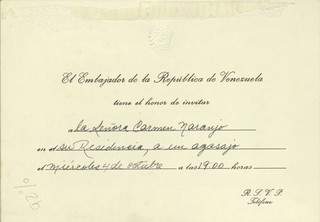 El Embajador de la República de Venezuela
tiene el honor de invitar
a la Señora Carmen Naranjo
en el su Residencia, a un agasajo
el miércoles 4 de octubre a las 19:00 horas
R. S. V. P.
Teléfono